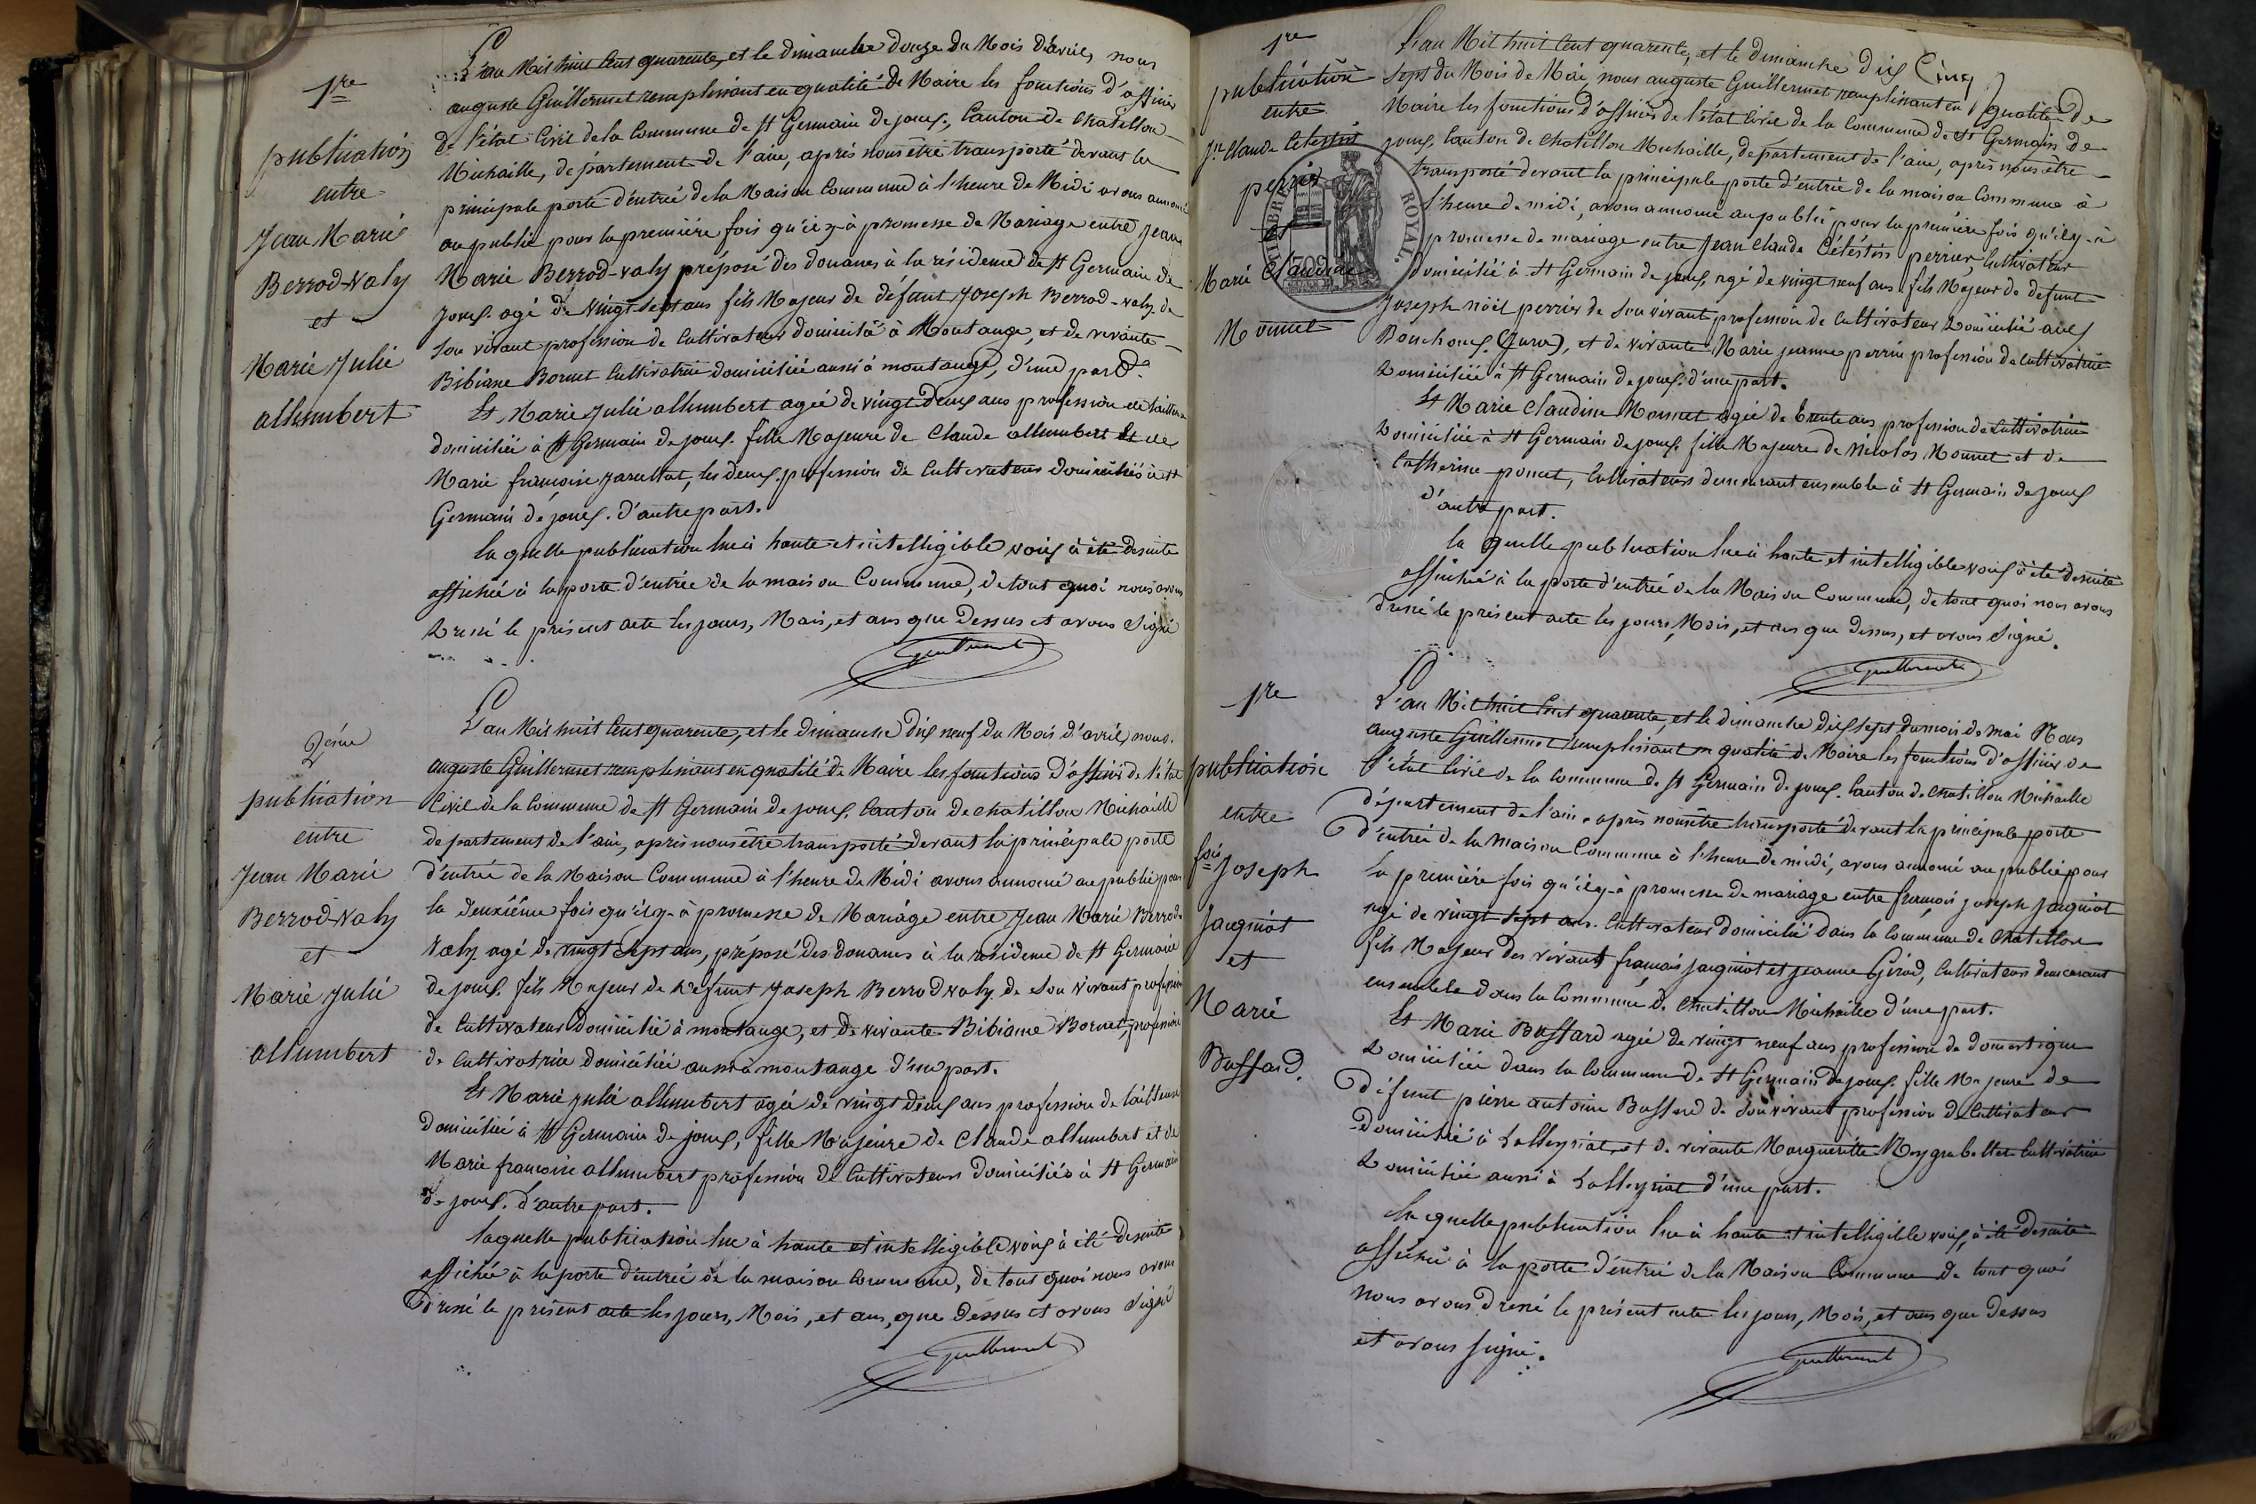 1re
publication
entre
Jean Marie
Berrod-Valy
et
Marie Julie
allumbert
L'an Mil huit Cent quarente, et le dimanche douze du Mois d'avril, nous
auguste Guillermet remplissant en qualité de Maire les fonctions d'officier
de l'état Civil de la Commune de St Germain de joux, Canton de Chatillon
Michaille, departement de l'ain, après nous être transporté devant la
principale porte d'entrée de la Maison Commune à l'heure de Midi avons annoncé
au public pour la première fois qu'il y a promesse de Mariage entre Jean
Marie Berrod-valy préposé des douanes à la résidence de St Germain de
joux agé de vingt-sept ans fils Majeur de défunt Joseph Berrod-valy de
son vivant profession de Cultivateur domicilié à Montange, et de vivante
Bibiane Bornet Cultivatrice domiciliée aussi à montange, d'une part.
Et Marie Julie allumbert agée de vingt deux ans profession de tailleuse
domiciliée à St Germain de joux fille Majeure de Claude allumbert et de
Marie françoise les deux profession de Cultivateurs domiciliés à St
Germain de joux. d'autre part.
la quelle publication lue à haute et intelligible voix à été desuite
affichée à la porte d'entrée de la maison Commune, de tout quoi nous avons
dressé le présent acte les jours, Mois, et ans que dessus et avons signé
Guillermet
2ème
publication
entre
Jean Marie
Berrod-Valy
et
Marie Julie
allumbert
L'an Mil huit Cent quarente, et le dimanche dix neuf du Mois d'avril, nous
auguste Guillermet remplissant en qualité de Maire les fonctions d'officier de l'état
Civil de la Commune de St Germain de joux, Canton de chatillon Michaille
departement de l'ain, après nous être transporté devant la principale porte
d'entrée de la Maison Commune à l'heure de Midi avons annoncé au public pour
la deuxième fois qu'il y a promesse de Mariage entre Jean Marie Berrod-
Valy agé de vingt sept ans, préposé des douanes à la résidence de St Germain
de joux fils Majeur de defunt Joseph Berrod valy de son vivant profession
de Cultivateur domicilié à montange, et de vivante Bibiane Bornet, profession
de Cultivatrice domiciliée aussi à montange d'une part.
Et Marie Julie allumbert agée de vingt deux ans profession de tailleuse
domiciliée à St Germain de joux, fille Majeure de Claude allumbert et de
Marie francoise allumbert profession de Cultivateurs domiciliés à St Germain
de joux. d'autre part.
laquelle publication lue à haute et intelligible voix à été desuite
affichée à la porte d'entrée de la maison Commune, de tout quoi nous avons
dressé le présent acte les jours, Mois, et ans, que dessus et avons signé
Guillermet
1re
publication
entre
Jn Claude Célestin
perrier
et
Marie Claudine
Monnet
ROYAL.
L'an Mil huit Cent quarente, et le dimanche dix Cinq
sept du Mois de Mai, nous auguste Guillermet remplissant en qualité de
Maire les fonctions d'officier de l'état Civil de la Commune de St Germain de
joux, Canton de Chatillon Michaille, departement de l'ain, après nous être
transporté devant la principale porte d'entrée de la maison Commune à
l'heure de midi, avons annoncé au public pour la première fois qu'il y a
promesse de mariage entre Jean Claude Célestin perrier, Cultivateur
domicilié à St Germain de joux, agé de vingt neuf ans fils Majeur de défunt
Joseph noël perrier de son vivant profession de Cultivateur domicilié aux
Bouchoux (Jura), et de vivante Marie jeanne perrin profession de Cultivatrice
domiciliée à St Germain de joux. d'une part.
Et Marie Claudine Monnet agée de trente ans profession de Cultivatrice
domiciliée à St Germain de joux fille Majeure de Nicolas Monnet et de
Catherine poncet, Cultivateurs demeurant ensemble à St Germain de joux
d'autre part.
la quelle publication lue à haute et intelligible voix à été desuite
affichée à la porte d'entrée de la Maison Commune, de tout quoi nous avons
dressé le présent acte les jours, Mois, et ans que dessus, et avons signé.
Guillermet
1re
publication
entre
fois Joseph
Jacquiot
et
Marie
Buffard.
L'an Mil huit Cent quarente, et le dimanche dix sept du mois de mai Nous
auguste Guillermet remplissant en qualité de Maire les fonctions d'officier de
l'état Civil de la Commune de St Germain de joux, Canton de Chatillon Michaille
département de l'ain, après nous être transporté devant la principale porte
d'entrée de la Maison Commune à l'heure de midi, avons annoncé au public pour
la première fois qu'il y a promesse de mariage entre françois joseph Jacquiot
agé de vingt sept ans Cultivateur domicilié dans la Commune de Chatillon
fils Majeur des vivant françois jacquiot et jeanne Girod, Cultivateurs demeurant
ensemble dans la Commune de Chatillon Michaille d'une part.
Et Marie Buffard agée de vingt neuf ans profession de domestique
domiciliée dans la Commune de St Germain de joux fille Majeure de
défunt pierre antoine Buffard de son vivant profession de Cultivateur
domicilié à Lalleyriat, et de vivante Marguerite Cultivatrice
domiciliée aussi à Lalleyriat d'une part.
la quelle publication lue à haute et intelligible voix, à été desuite
affichée à la porte d'entrée de la Maison Commune de tout quoi
nous avons dressé le présent acte les jours, Mois, et ans que dessus
et avons signé.
Guillermet